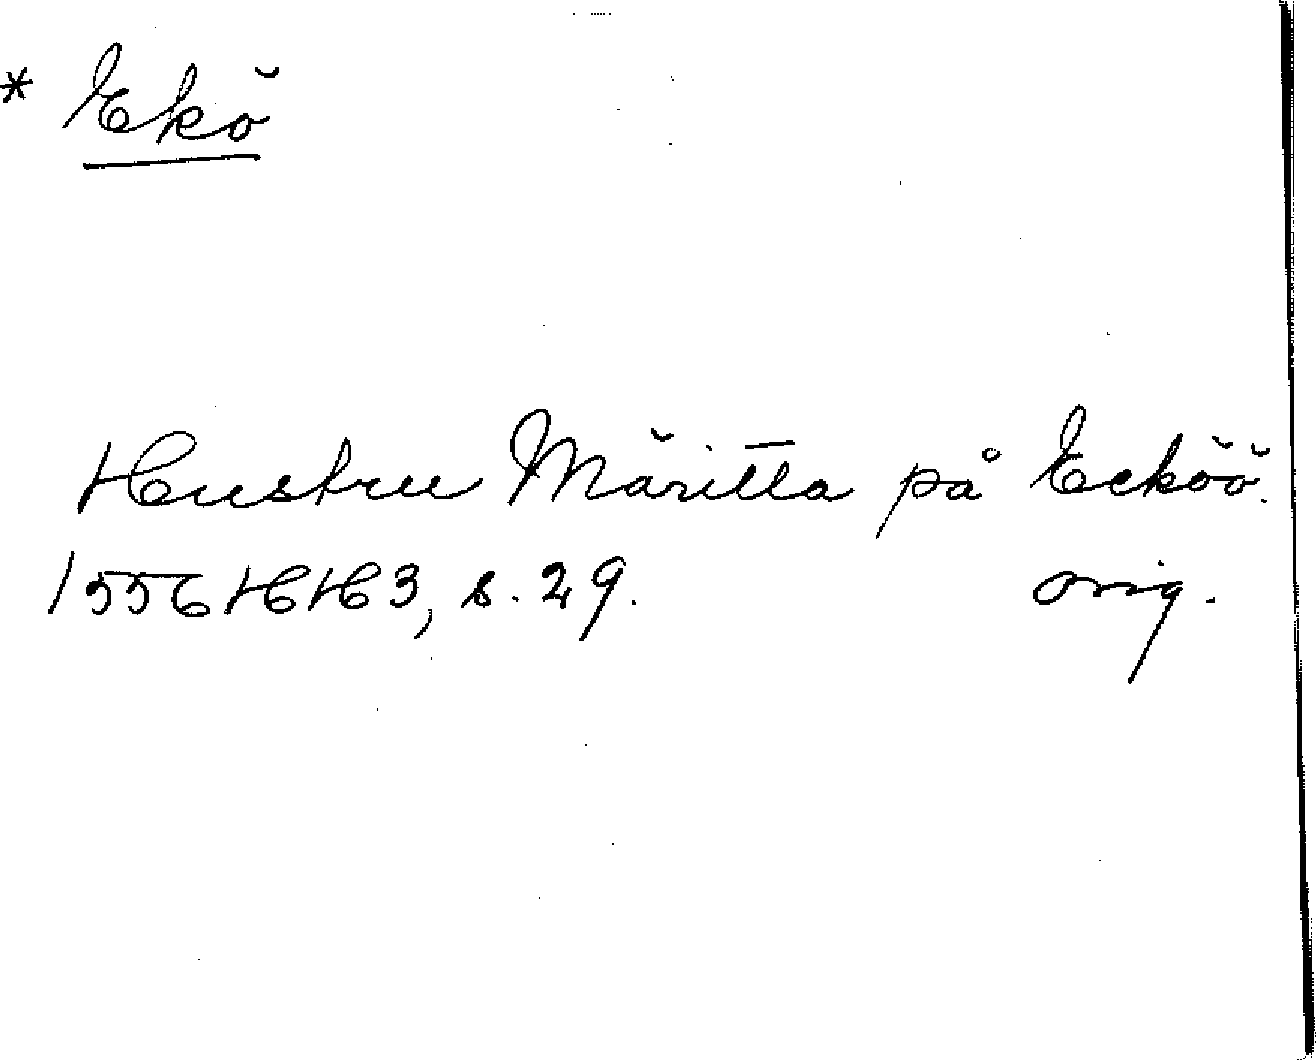 * Ekö
Hustru Märitta på Ecköö.
1556 HH3, s. 29. orig.